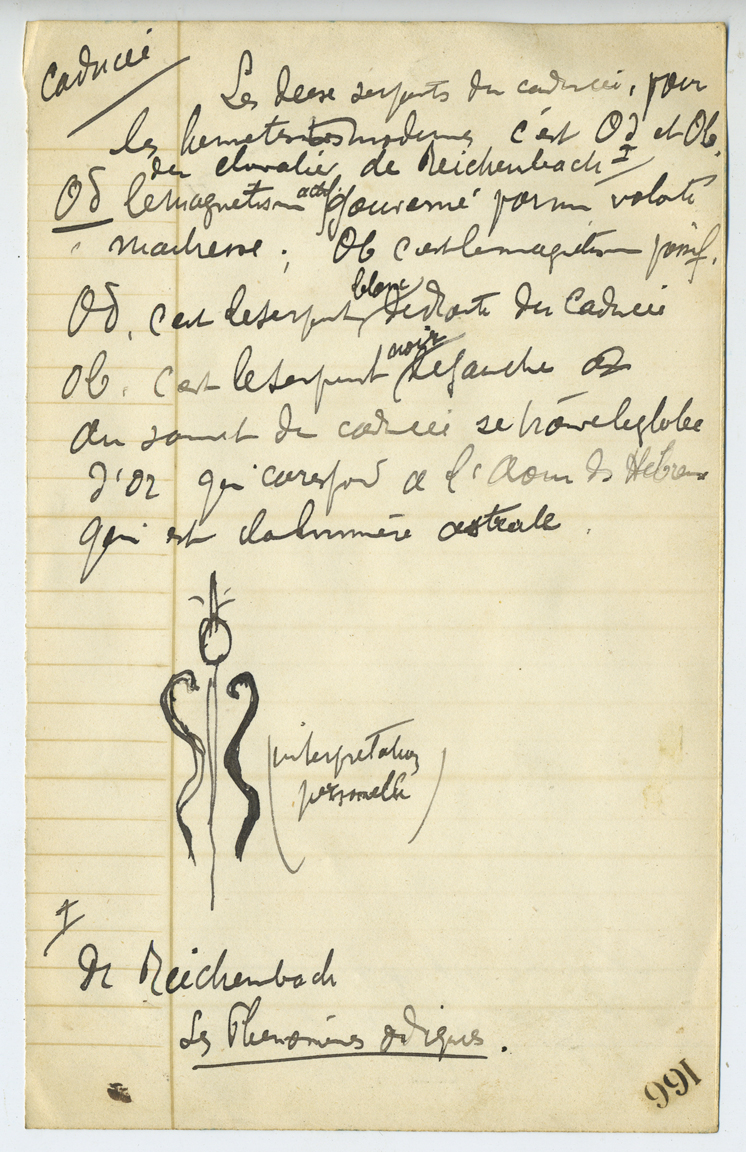 Caducée
Les deux serpents du caducée, pour
les hermetistes modernes c'est Od et Ob.
du chevalier de Reichenbach I
Od le magnetism actif gouverné par un volonté
maitresse ; Ob c'est le magnetism passif.
blanc
Od, c'est le serpent de droite du Caducée
noir
Ob, c'est le serpent de gauche
Au sommet du caducée se trouve le globe
d'Or qui correspond a l'Aour des Hebreux
qui est la lumière astrale.
(interpretation
personnelle)
I
de Reichenbach
Les Phenomènes odiques.
166